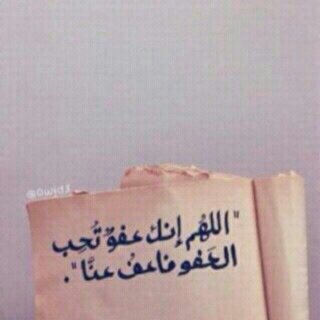 @0wjd3
"اللهُم إنك عفوٌ تُحِب
العَفو فاعفُ عنَّا".